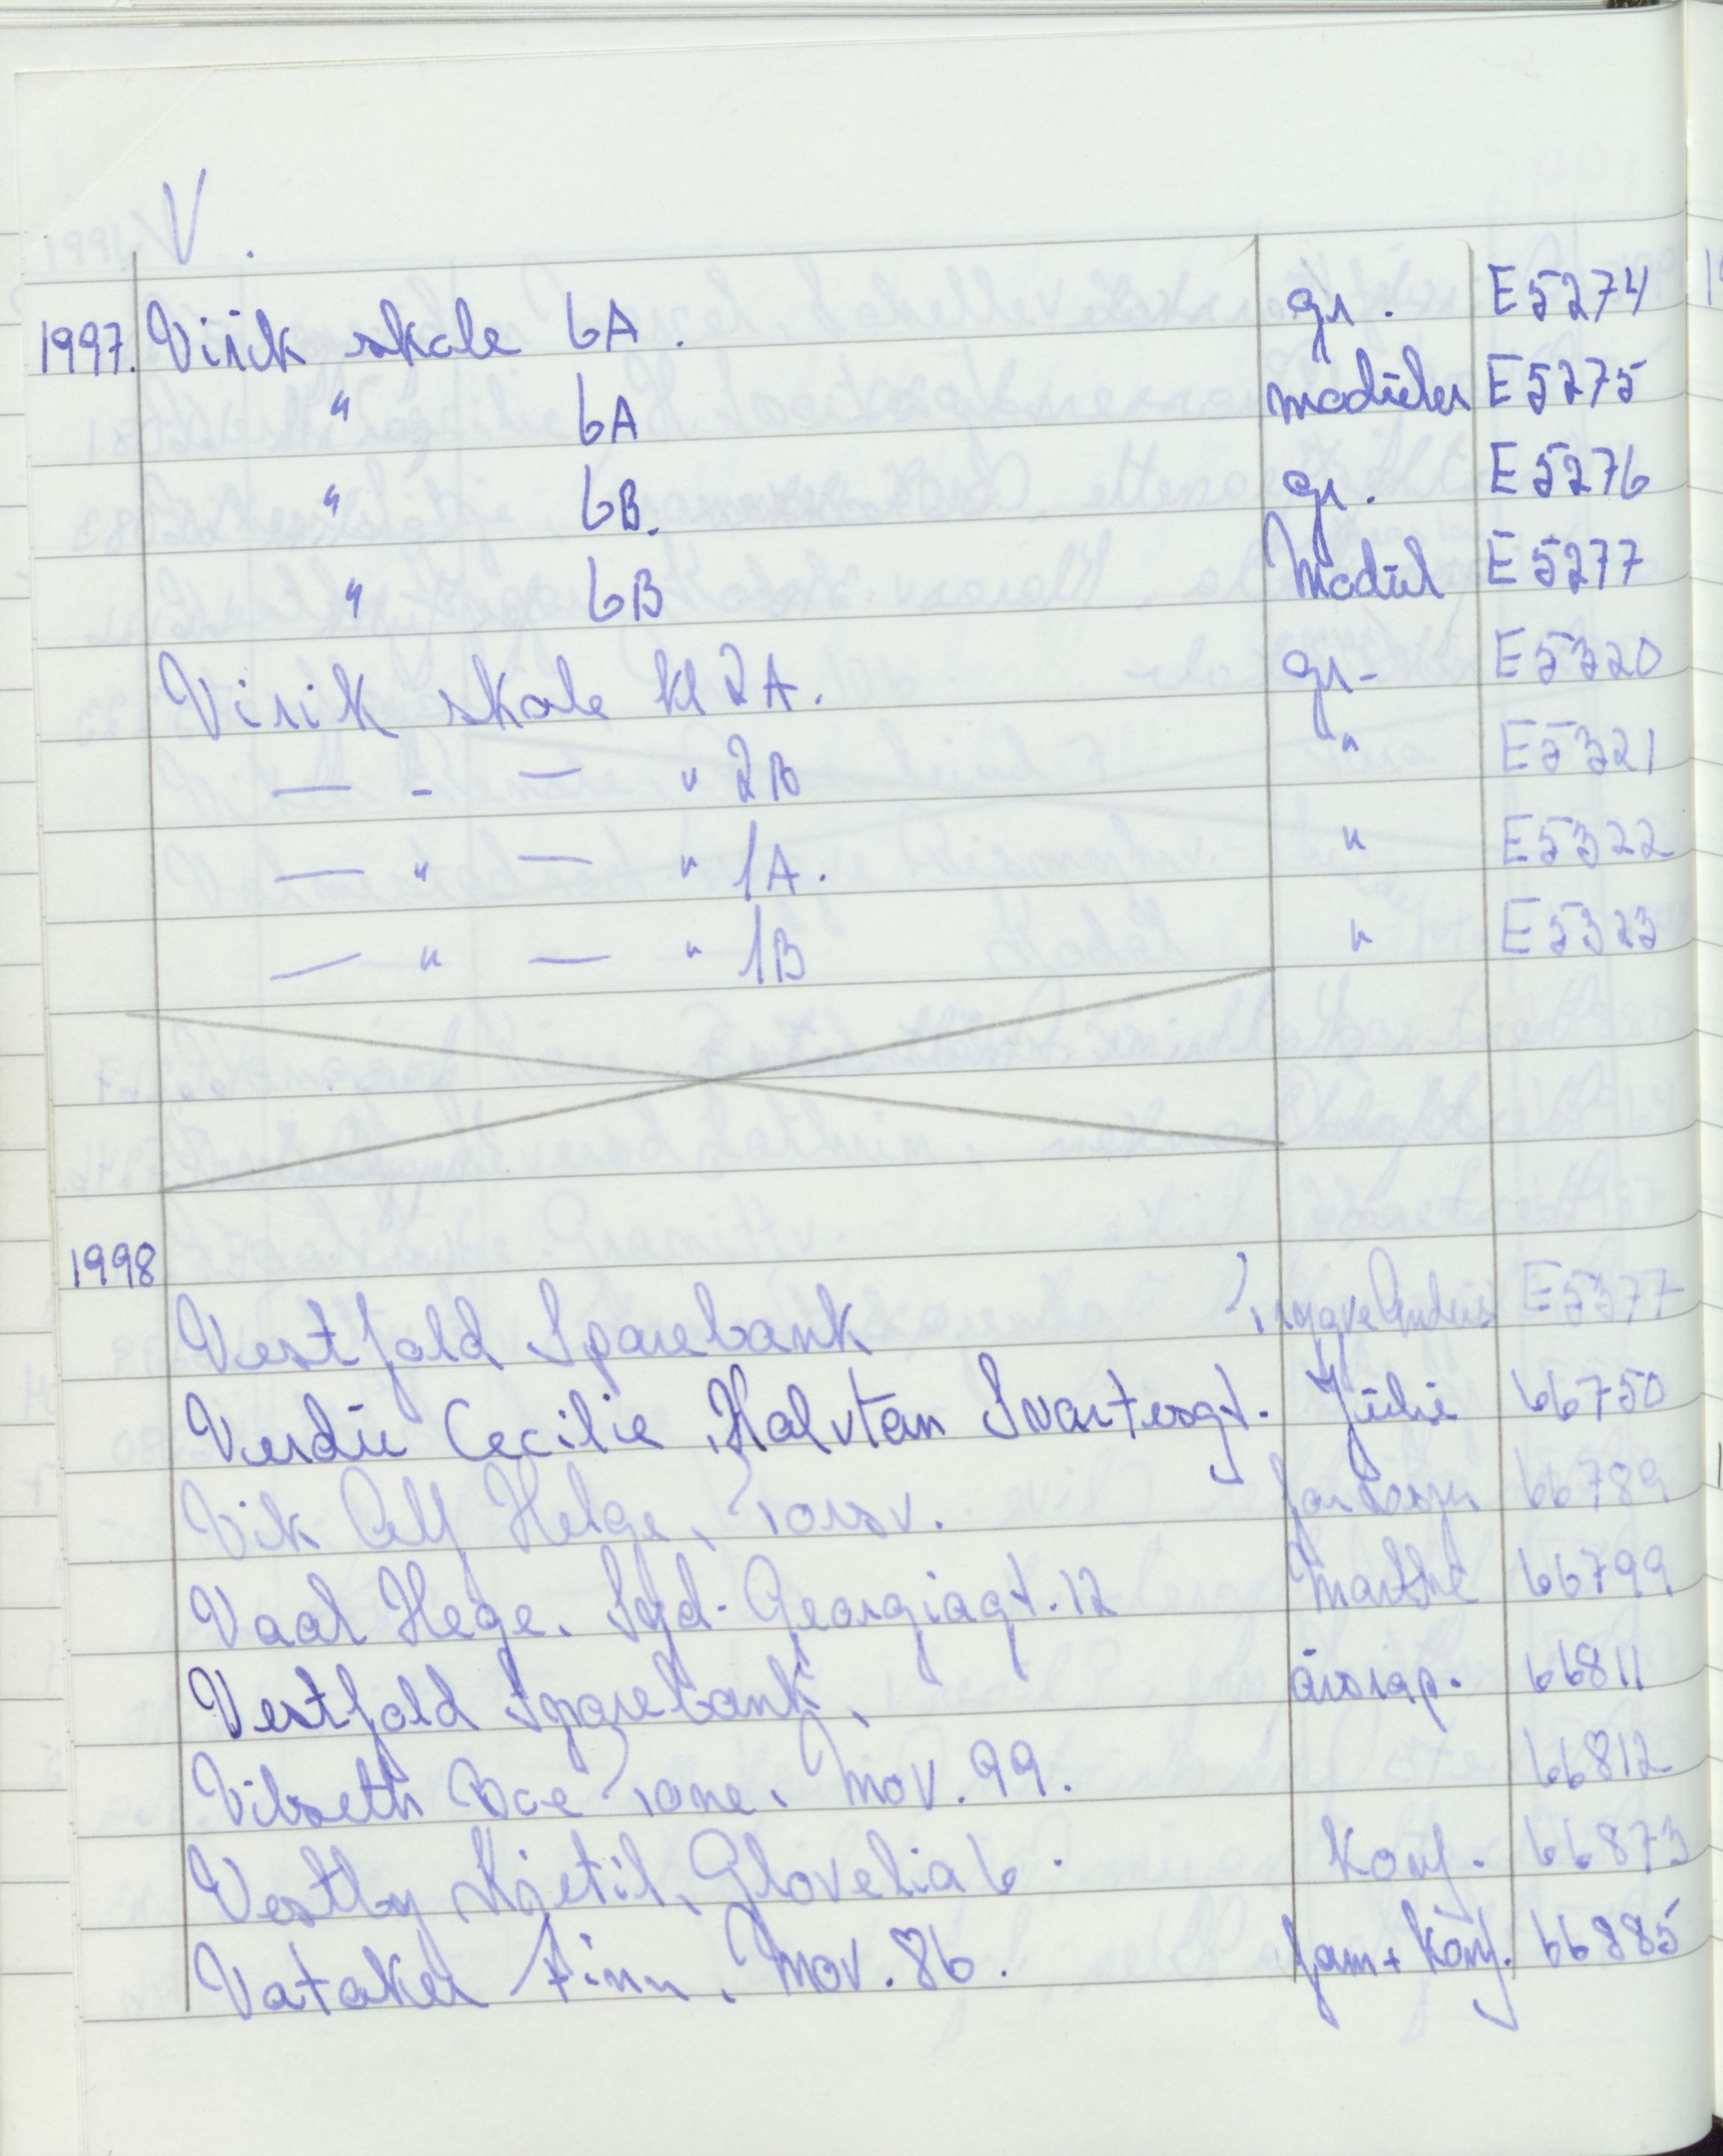 V.
1997. Virik skole 6A. gr. E5274
" 6A moduler E5275
" 6B. gr. E5276
" 6B Modul E5277
Virik skole kl 2A. gr- E5320
— - — " 2B " E5321
— " — " 1A. " E5322
— " — " 1B " E5323
1998
Vestfold Sparebank E5377
Verdu Cecilie, Halvtan Svartesgt. Julie 66750
Vik Alf Helge, Torsv. 66789
Vaal Hege. Syd-Georgiagt. 12 Marthe 66799
Vestfold Sparebank, årsrap. 66811
Tone, Mov. 99. 66812
Vestby Kjetil, Glovelia 6. Konf. 66873
Vataker Finn, Mov. 86. fam + Konf. 66885